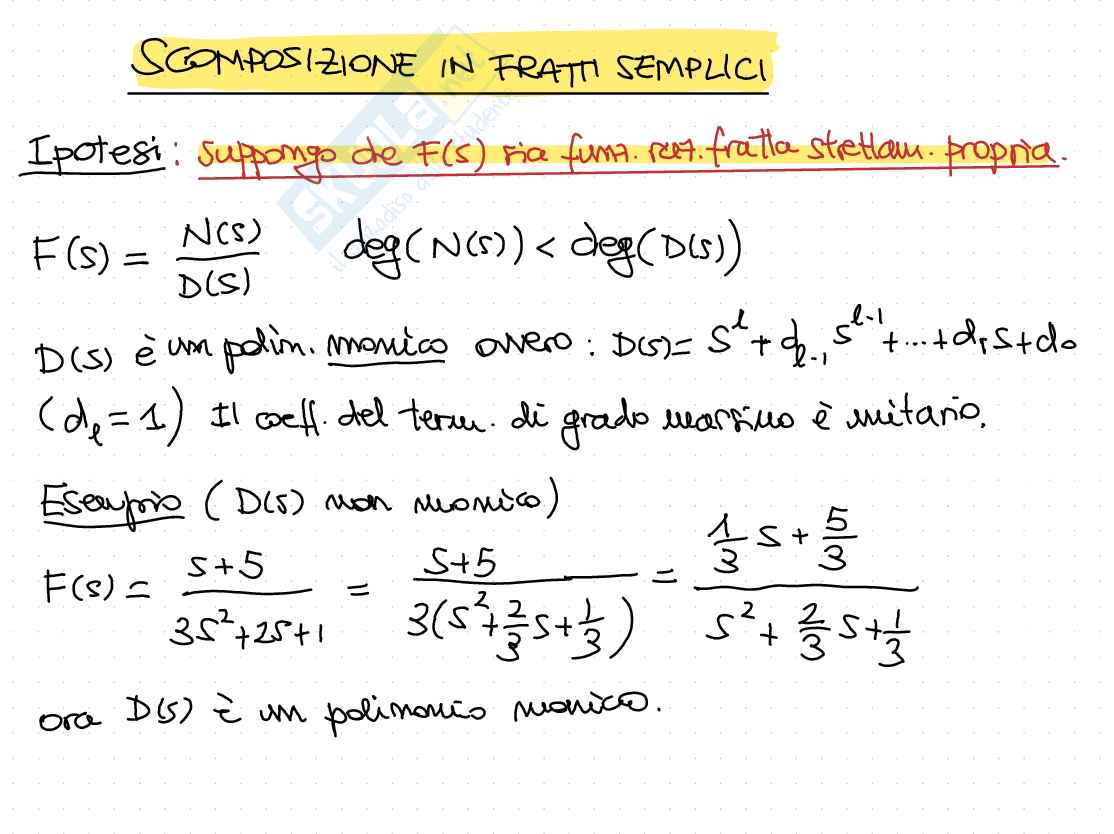 SCOMPOSIZIONE IN FRATTI SEMPLICI
Ipotesi: suppongo che F(s) sia funz. raz. fratta strettam. propria.
F(s) = N(s)/D(s) deg(N(s)) < deg(D(s))
D(s) è un polin. monico ovvero: D(s) = s^l + d_{l-1} s^{l-1} + ... + d_1 s + d_0
(d_l = 1) Il coeff. del term. di grado massimo è unitario.
Esempio (D(s) non monico)
F(s) = (s+5)/(3s^2+2s+1) = (s+5)/(3(s^2+2/3 s+1/3)) = (1/3 s + 5/3)/(s^2 + 2/3 s + 1/3)
ora D(s) è un polinomio monico.